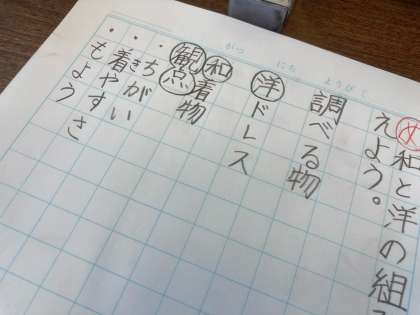 がつ にち ようび
め 和と洋の組
えよう。
調べる物
洋 ドレス
和 着物
観点
・ちがい
・着やすさ
・もよう